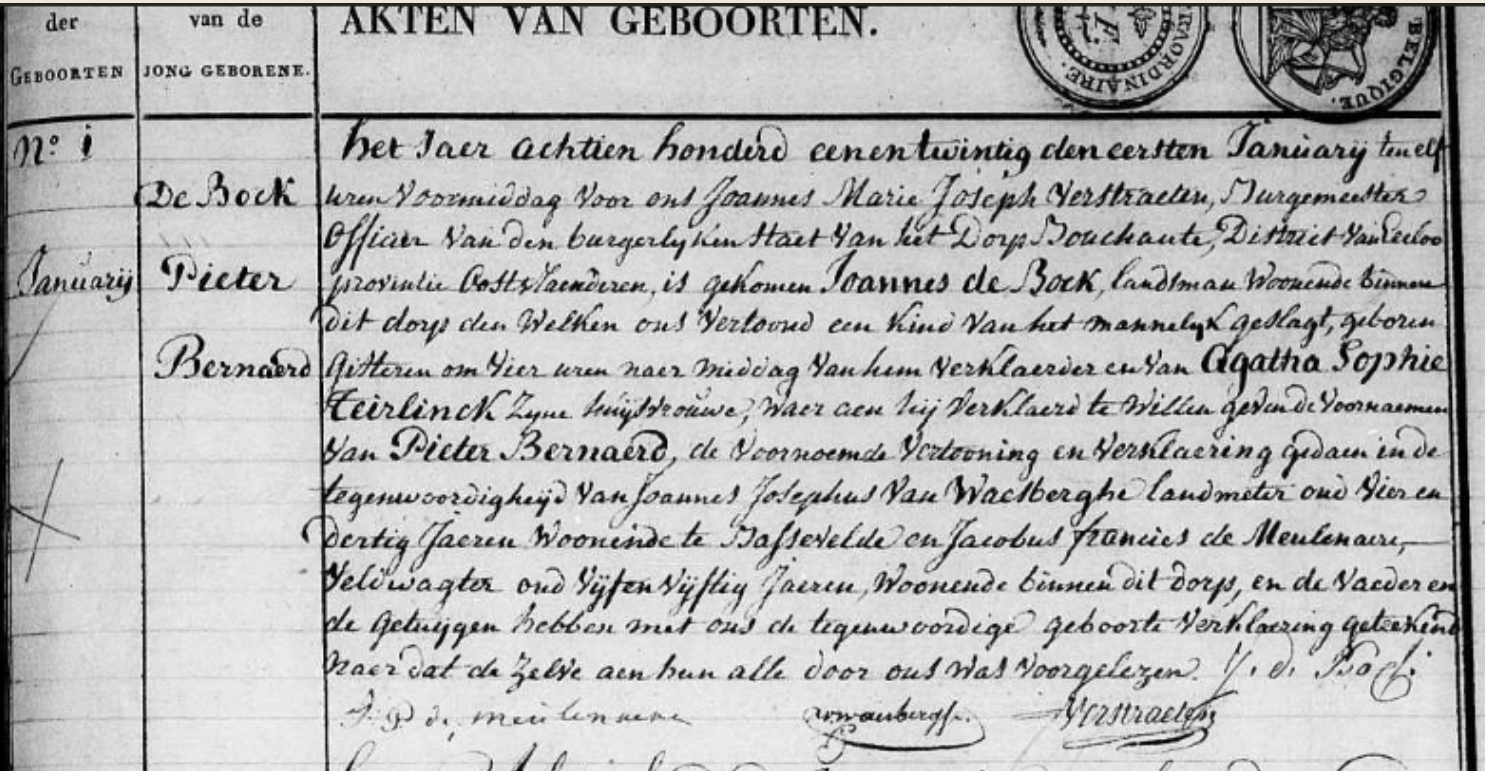 der
GEBOORTEN
van de
JONG GEBORENE.
AKTEN VAN GEBOORTEN.
RAORDINAIRE.
BELGIQUE.
N.º 1
Januarij
De Bock
Pieter
Bernaerd
het Jaer achtien honderd eenentwintig den eersten Januarij ten elf
uren Voormiddag Voor ons Joannes Marie Joseph Verstraeten, Burgemeester
Officier Van den burgerlyken Staet Van het Dorp Bouchaute, District Van Eecloo
provintie Oostvlaenderen, is gekomen Joannes de Bock, landsman Woonende binnen
dit dorp den Welken ons Vertoond een kind Van het mannelyk geslagt, geboren
gisteren om Vier uren naer middag Van hem Verklaerder en Van Agatha Sophie
Teirlinck Zyne huijsvrouwe, waer aen hij Verklaerd te Willen geven de Voornaemen
Van Pieter Bernaerd, de Voornoemde Vertooning en Verklaering gedaen in de
tegenwoordigheijd Van Joannes Josephus Van Waesberghe landmeter oud Vier en
dertig Jaeren Woonende te Bassevelde en Jacobus francies de Meulenaere,
Veldwagter oud Vijf en Vijftig Jaeren, Woonende binnen dit dorp, en de Vaeder en
de getuijgen hebben met ons de tegenwoordige geboorte Verklaering geteekend
Naer dat de Zelve aen hun alle door ons was Voorgelezen. J. d. Bock
J. F. de meulenaere
Verstraeten